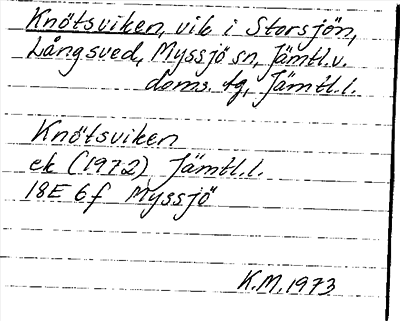 Knötsviken, vik i Storsjön,
Långsved, Myssjö sn, Jämtl.v.
doms. tg, Jämtl.l.
Knötsviken
ek (1972) Jämtl.l.
18E 6f Myssjö
K.M.1973